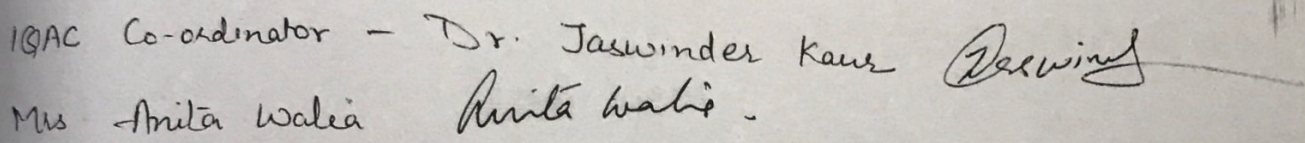 IQAC Co-ordinator - Dr. Jaswinder Kaur
Mrs Anita Walia Anita Walia.